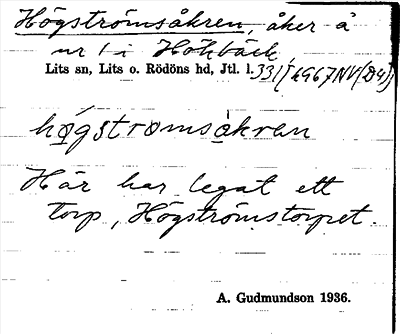 Högströmsåkren, åker å
nr 1 i Hökbäck
Lits sn, Lits o. Rödöns hd, Jtl. l. 331/1967NV(D4)
högstrømsåkren
Här har legat ett
torp, Högströmstorpet.
A. Gudmundson 1936.